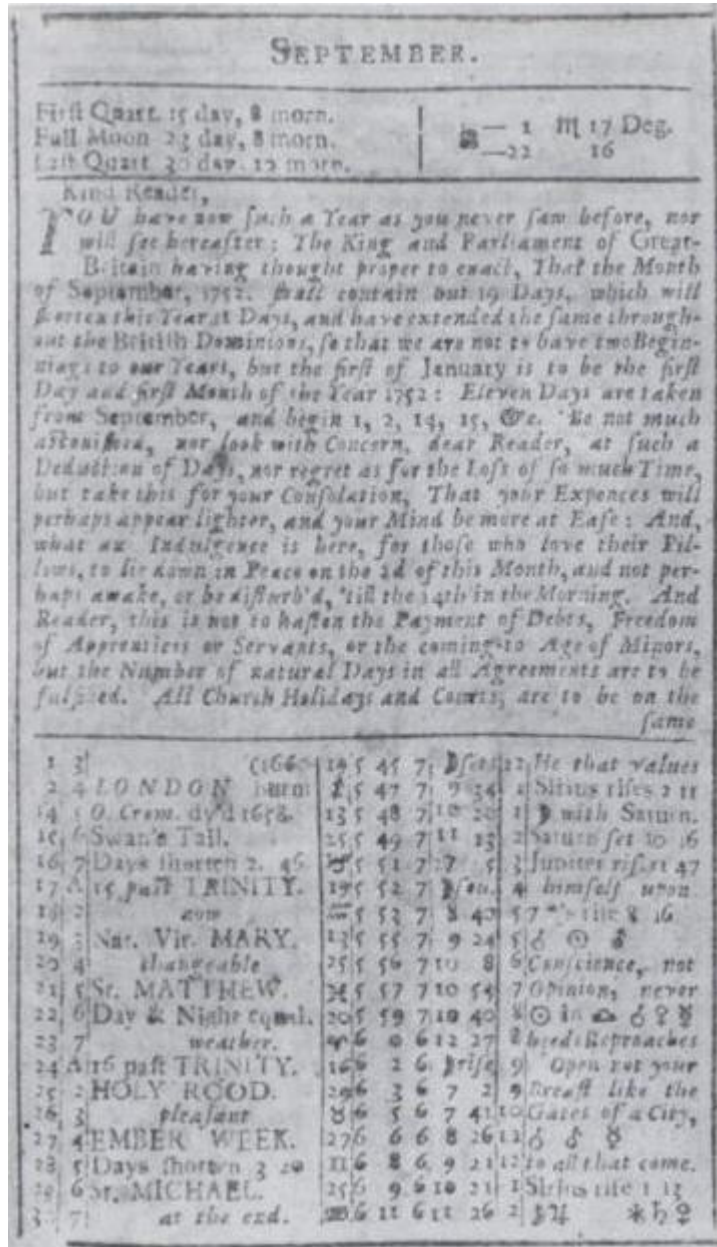 SEPTEMBER.
First Quart. 15 day, 8 morn.
Full Moon 23 day, 8 morn.
Last Quart. 30 day, 12 morn.
— 1 ♏ 17 Deg.
—22 16
Kind Reader,
YOU have now such a Year as you never saw before, nor
will see hereafter: The King and Parliament of Great-
Britain having thought proper to enact, That the Month
of September, 1752. shall contain but 19 Days, which will
shorten this Year 11 Days, and have extended the same through-
out the British Dominions, so that we are not to have two Begin-
nings to our Years, but the first of January is to be the first
Day and first Month of the Year 1752: Eleven Days are taken
from September, and begin 1, 2, 14, 15, &c. Be not much
astonished, nor look with Concern, dear Reader, at such a
Deduction of Days, nor regret as for the Loss of so much Time,
but take this for your Consolation, That your Expences will
perhaps appear lighter, and your Mind be more at Ease: And,
what an Indulgence is here, for those who love their Pil-
lows, to lie down in Peace on the 2d of this Month, and not per-
haps awake, or be disturb'd, 'till the 14th in the Morning. And
Reader, this is not to hasten the Payment of Debts, Freedom
of Apprentices or Servants, or the coming-to Age of Minors,
but the Number of natural Days in all Agreements are to be
fulfilled. All Church Holidays and Courts, are to be on the
same
1 3 (166 5 45 7 ☽ set 12 He that values
2 4 LONDON burn 5 47 7 9 34 1 Sirius rises 2 11
14 5 O. Crom. dy'd 1658. 13 5 48 7 10 20 1 ☽ with Saturn.
15 6 Swan's Tail. 25 5 49 7 11 13 2 Saturn set 10 16
16 7 Days shorten 2. 46 ♑ 5 51 7 5 3 Jupiter rises 47
17 A 15 past TRINITY. 19 5 52 7 ☽ sou. 4 himself upon
18 2 now ♒ 5 53 7 8 40 5 7 *'s rise 8 16
19 3 Nat. Vir. MARY. 13 5 55 7 9 24 5 ☌ ☉
20 4 changeable 25 5 56 7 10 8 6 Conscience, not
21 5 St. MATTHEW. ♓ 5 57 7 10 54 7 Opinion, never
22 6 Day & Night equal. 20 5 59 7 40 8 ☉ in ♎ ☌ ♀ ☿
23 7 weather. ♈ 6 0 6 12 27 8 heeds Reproaches
24 A 16 past TRINITY. 16 6 2 6 ☽ rise 9 Open not your
25 2 HOLY ROOD. 29 6 3 6 7 2 9 Breast like the
26 3 pleasant ♉ 6 5 6 7 41 10 Gates of a City,
27 4 EMBER WEEK. 27 6 6 6 8 26 12 ☌
28 5 Days shorten 3 20 11 6 8 6 9 21 12 to all that come.
29 6 St. MICHAEL. 25 6 9 6 10 21 1 Sirius rise 1 13
7 at the end. 6 11 6 11 26 2 ♃ ✶ ♄ ♀